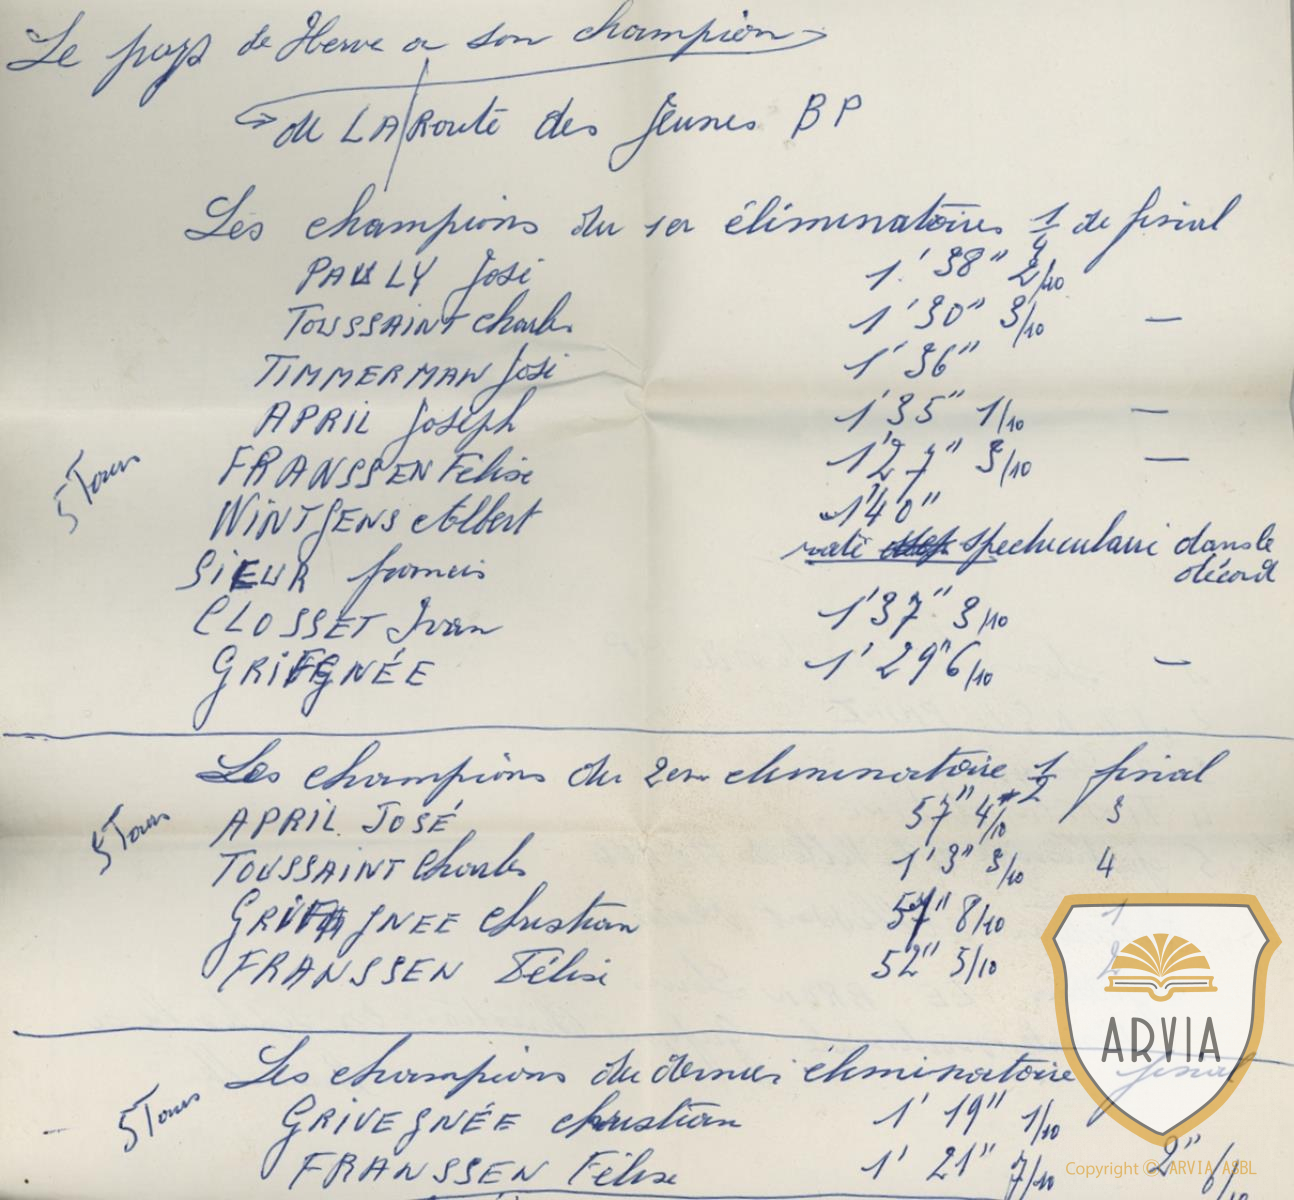 Le pays de Herve a son champion
de LA Route des Jeunes BP
Les champions du 1er éliminatoires 1/4 de final
PAULY José 1' 38" 2/10
TOUSSAINT Charles 1' 30" 3/10 —
TIMMERMAN José 1' 36"
APRIL Joseph 1' 35" 1/10 —
5 Tours
FRANSSEN Félise 1' 27" 3/10 —
WINTGENS Albert 1' 40"
SIEUR francis raté spectuculaire dans le
décord
CLOSSET Ivan 1' 37" 3/10
GRIVEGNÉE 1' 29" 6/10 —
Les champions du 2em eliminatoire 1/2 final
5 Tours
APRIL JOSÉ 57" 4/10 3
TOUSSAINT Charles 1' 3" 3/10 4
GRIVEGNEE christian 57" 8/10 1
FRANSSEN Félise 52" 5/10 2
Les champions du dernier éliminatoire final
— 5 Tours
GRIVEGNÉE christian 1' 19" 1/10
FRANSSEN Félise 1' 21" 7/10 2" 6/10
ARVIA
Copyright © ARVIA ASBL